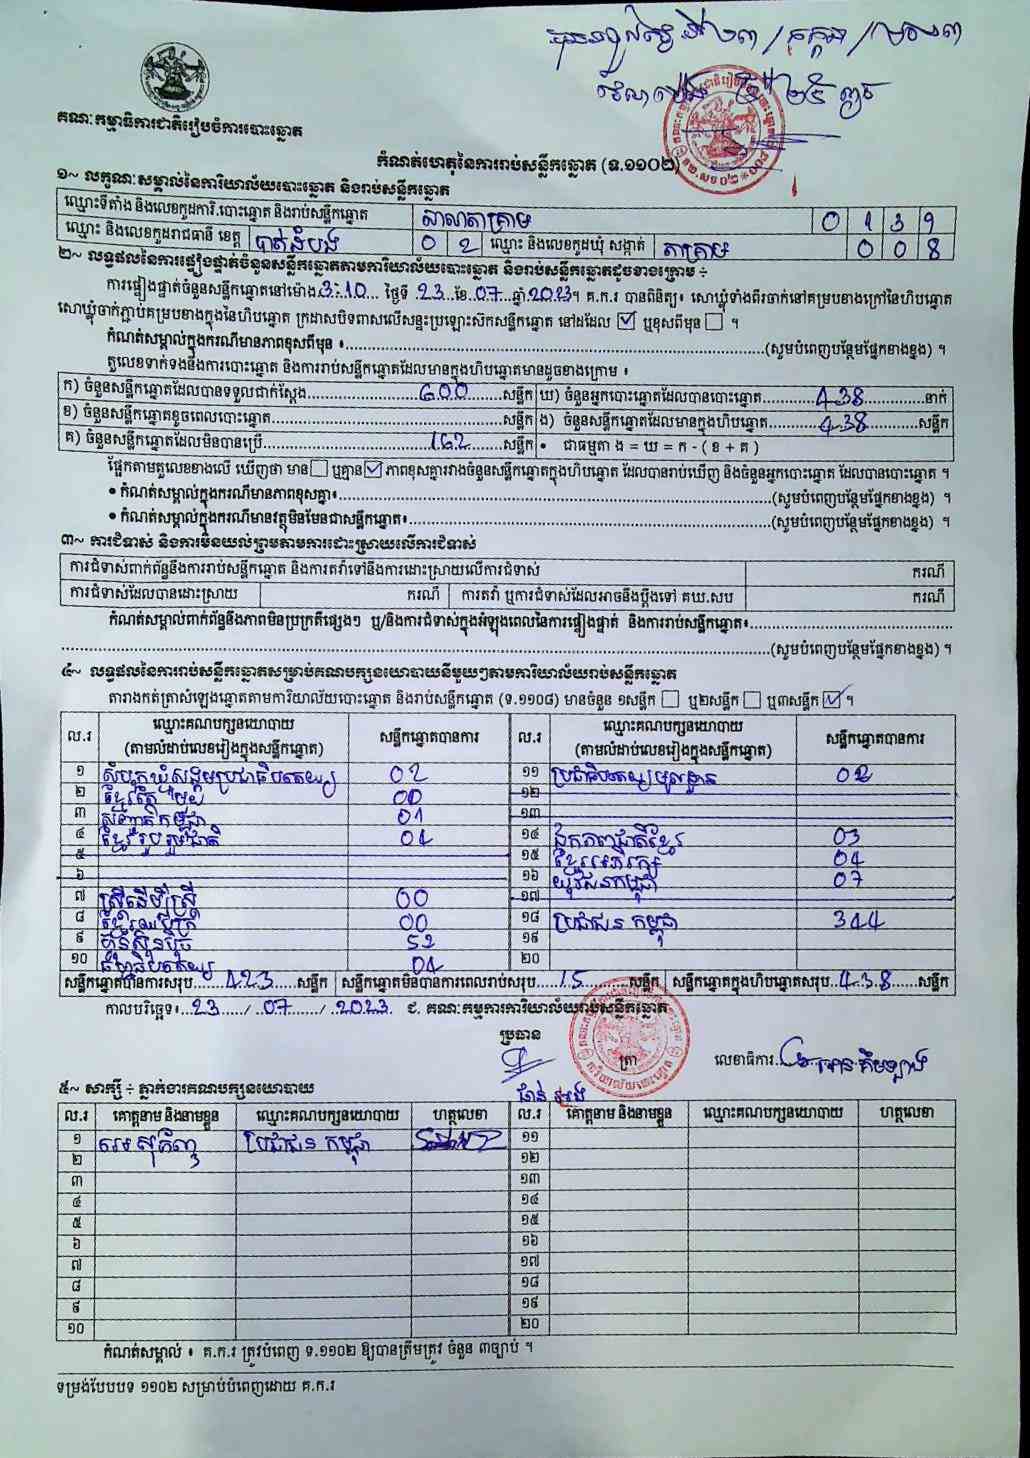 គណៈកម្មាធិការជាតិរៀបចំការបោះឆ្នោត
កំណត់ហេតុនៃការរាប់សន្លឹកឆ្នោត (ទ.១១០២)
១~ លក្ខណៈសម្គាល់នៃការិយាល័យបោះឆ្នោត និងរាប់សន្លឹកឆ្នោត
ឈ្មោះទីតាំង និងលេខកូដការិ.បោះឆ្នោត និងរាប់សន្លឹកឆ្នោត សាលាតាគ្រាម 0 1 3 9
ឈ្មោះ និងលេខកូដរាជធានី ខេត្ត បាត់ដំបង 0 2 ឈ្មោះ និងលេខកូដឃុំ សង្កាត់ តាគ្រាម 0 0 8
២~ លទ្ធផលនៃការផ្ទៀងផ្ទាត់ចំនួនសន្លឹកឆ្នោតតាមការិយាល័យបោះឆ្នោត និងរាប់សន្លឹកឆ្នោតដូចខាងក្រោម ÷
ការផ្ទៀងផ្ទាត់ចំនួនសន្លឹកឆ្នោតនៅម៉ោង 3:10 ថ្ងៃទី 23 ខែ 07 ឆ្នាំ 2023។ គ.ក.រ បានពិនិត្យ៖ សោឃ្លុំទាំងពីរចាក់នៅគម្របខាងក្រៅនៃហិបឆ្នោត
សោឃ្លុំចាក់ភ្ជាប់គម្របខាងក្នុងនៃហិបឆ្នោត ក្រដាសបិទពាសលើសន្ទះប្រឡោះស៊កសន្លឹកឆ្នោត នៅដដែល ☑ ឬខុសពីមុន ☐ ។
កំណត់សម្គាល់ក្នុងករណីមានភាពខុសពីមុន ៖ (សូមបំពេញបន្ថែមផ្នែកខាងខ្នង) ។
តួលេខទាក់ទងនឹងការបោះឆ្នោត និងការរាប់សន្លឹកឆ្នោតដែលមានក្នុងហិបឆ្នោតមានដូចខាងក្រោម ៖
ក) ចំនួនសន្លឹកឆ្នោតដែលបានទទួលជាក់ស្តែង 600 សន្លឹក ឃ) ចំនួនអ្នកបោះឆ្នោតដែលបានបោះឆ្នោត 438 នាក់
ខ) ចំនួនសន្លឹកឆ្នោតខូចពេលបោះឆ្នោត សន្លឹក ង) ចំនួនសន្លឹកឆ្នោតដែលមានក្នុងហិបឆ្នោត 438 សន្លឹក
គ) ចំនួនសន្លឹកឆ្នោតដែលមិនបានប្រើ 162 សន្លឹក • ជាធម្មតា ង = ឃ = ក - ( ខ + គ )
ផ្អែកតាមតួលេខខាងលើ ឃើញថា មាន ☐ ឬគ្មាន ☑ ភាពខុសគ្នារវាងចំនួនសន្លឹកឆ្នោតក្នុងហិបឆ្នោត ដែលបានរាប់ឃើញ និងចំនួនអ្នកបោះឆ្នោត ដែលបានបោះឆ្នោត ។
• កំណត់សម្គាល់ក្នុងករណីមានភាពខុសគ្នា៖ (សូមបំពេញបន្ថែមផ្នែកខាងខ្នង) ។
• កំណត់សម្គាល់ក្នុងករណីមានវត្ថុមិនមែនជាសន្លឹកឆ្នោត៖ (សូមបំពេញបន្ថែមផ្នែកខាងខ្នង) ។
៣~ ការជំទាស់ និងការមិនយល់ព្រមតាមការដោះស្រាយលើការជំទាស់
ការជំទាស់ពាក់ព័ន្ធនឹងការរាប់សន្លឹកឆ្នោត និងការតវ៉ាទៅនឹងការដោះស្រាយលើការជំទាស់ ករណី
ការជំទាស់ដែលបានដោះស្រាយ ករណី ការតវ៉ា ឬការជំទាស់ដែលអាចនឹងប្តឹងទៅ គឃ.សប ករណី
កំណត់សម្គាល់ពាក់ព័ន្ធនឹងភាពមិនប្រក្រតីផ្សេងៗ ឬ/និងការជំទាស់ក្នុងអំឡុងពេលនៃការផ្ទៀងផ្ទាត់ និងការរាប់សន្លឹកឆ្នោត៖
(សូមបំពេញបន្ថែមផ្នែកខាងខ្នង) ។
៤~ លទ្ធផលនៃការរាប់សន្លឹកឆ្នោតសម្រាប់គណបក្សនយោបាយនីមួយៗតាមការិយាល័យរាប់សន្លឹកឆ្នោត
តារាងកត់ត្រាសំឡេងឆ្នោតតាមការិយាល័យបោះឆ្នោត និងរាប់សន្លឹកឆ្នោត (ទ.១១០៨) មានចំនួន ១សន្លឹក ☐ ឬ២សន្លឹក ☐ ឬ៣សន្លឹក ☑ ។
ល.រ ឈ្មោះគណបក្សនយោបាយ (តាមលំដាប់លេខរៀងក្នុងសន្លឹកឆ្នោត) សន្លឹកឆ្នោតបានការ ល.រ ឈ្មោះគណបក្សនយោបាយ (តាមលំដាប់លេខរៀងក្នុងសន្លឹកឆ្នោត) សន្លឹកឆ្នោតបានការ
១ សំបុកឃ្មុំសង្គមប្រជាធិបតេយ្យ 02 ១១ ប្រជាធិបតេយ្យមូលដ្ឋាន 02
២ ខ្មែរតែមួយ 00 ១២
៣ សញ្ជាតិកម្ពុជា 01 ១៣
៤ ខ្មែររួបរួមជាតិ 04 ១៤ ឯកភាពជាតិខ្មែរ 03
៥ ១៥ ខ្មែរអភិរក្ស 04
៦ ១៦ យុវជនកម្ពុជា 07
៧ ស្ត្រីដើម្បីស្ត្រី 00 ១៧
៨ ខ្មែរឈប់ក្រ 00 ១៨ ប្រជាជន កម្ពុជា 344
៩ ហ៊្វុនស៊ិនប៉ិច 52 ១៩
១០ ធម្មាធិបតេយ្យ 04 ២០
សន្លឹកឆ្នោតបានការសរុប 423 សន្លឹក សន្លឹកឆ្នោតមិនបានការពេលរាប់សរុប 15 សន្លឹក សន្លឹកឆ្នោតក្នុងហិបឆ្នោតសរុប 438 សន្លឹក
កាលបរិច្ឆេទ៖ 23 / 07 / 2023 ជ. គណៈកម្មការការិយាល័យរាប់សន្លឹកឆ្នោត
ប្រធាន
ត្រា លេខាធិការ
៥~ សាក្សី ÷ ភ្នាក់ងារគណបក្សនយោបាយ
ល.រ គោត្តនាម និងនាមខ្លួន ឈ្មោះគណបក្សនយោបាយ ហត្ថលេខា ល.រ គោត្តនាម និងនាមខ្លួន ឈ្មោះគណបក្សនយោបាយ ហត្ថលេខា
១ ប្រជាជន កម្ពុជា ១១
២ ១២
៣ ១៣
៤ ១៤
៥ ១៥
៦ ១៦
៧ ១៧
៨ ១៨
៩ ១៩
១០ ២០
កំណត់សម្គាល់ ៖ គ.ក.រ ត្រូវបំពេញ ទ.១១០២ ឱ្យបានត្រឹមត្រូវ ចំនួន ៣ច្បាប់ ។
ទម្រង់បែបបទ ១១០២ សម្រាប់បំពេញដោយ គ.ក.រ